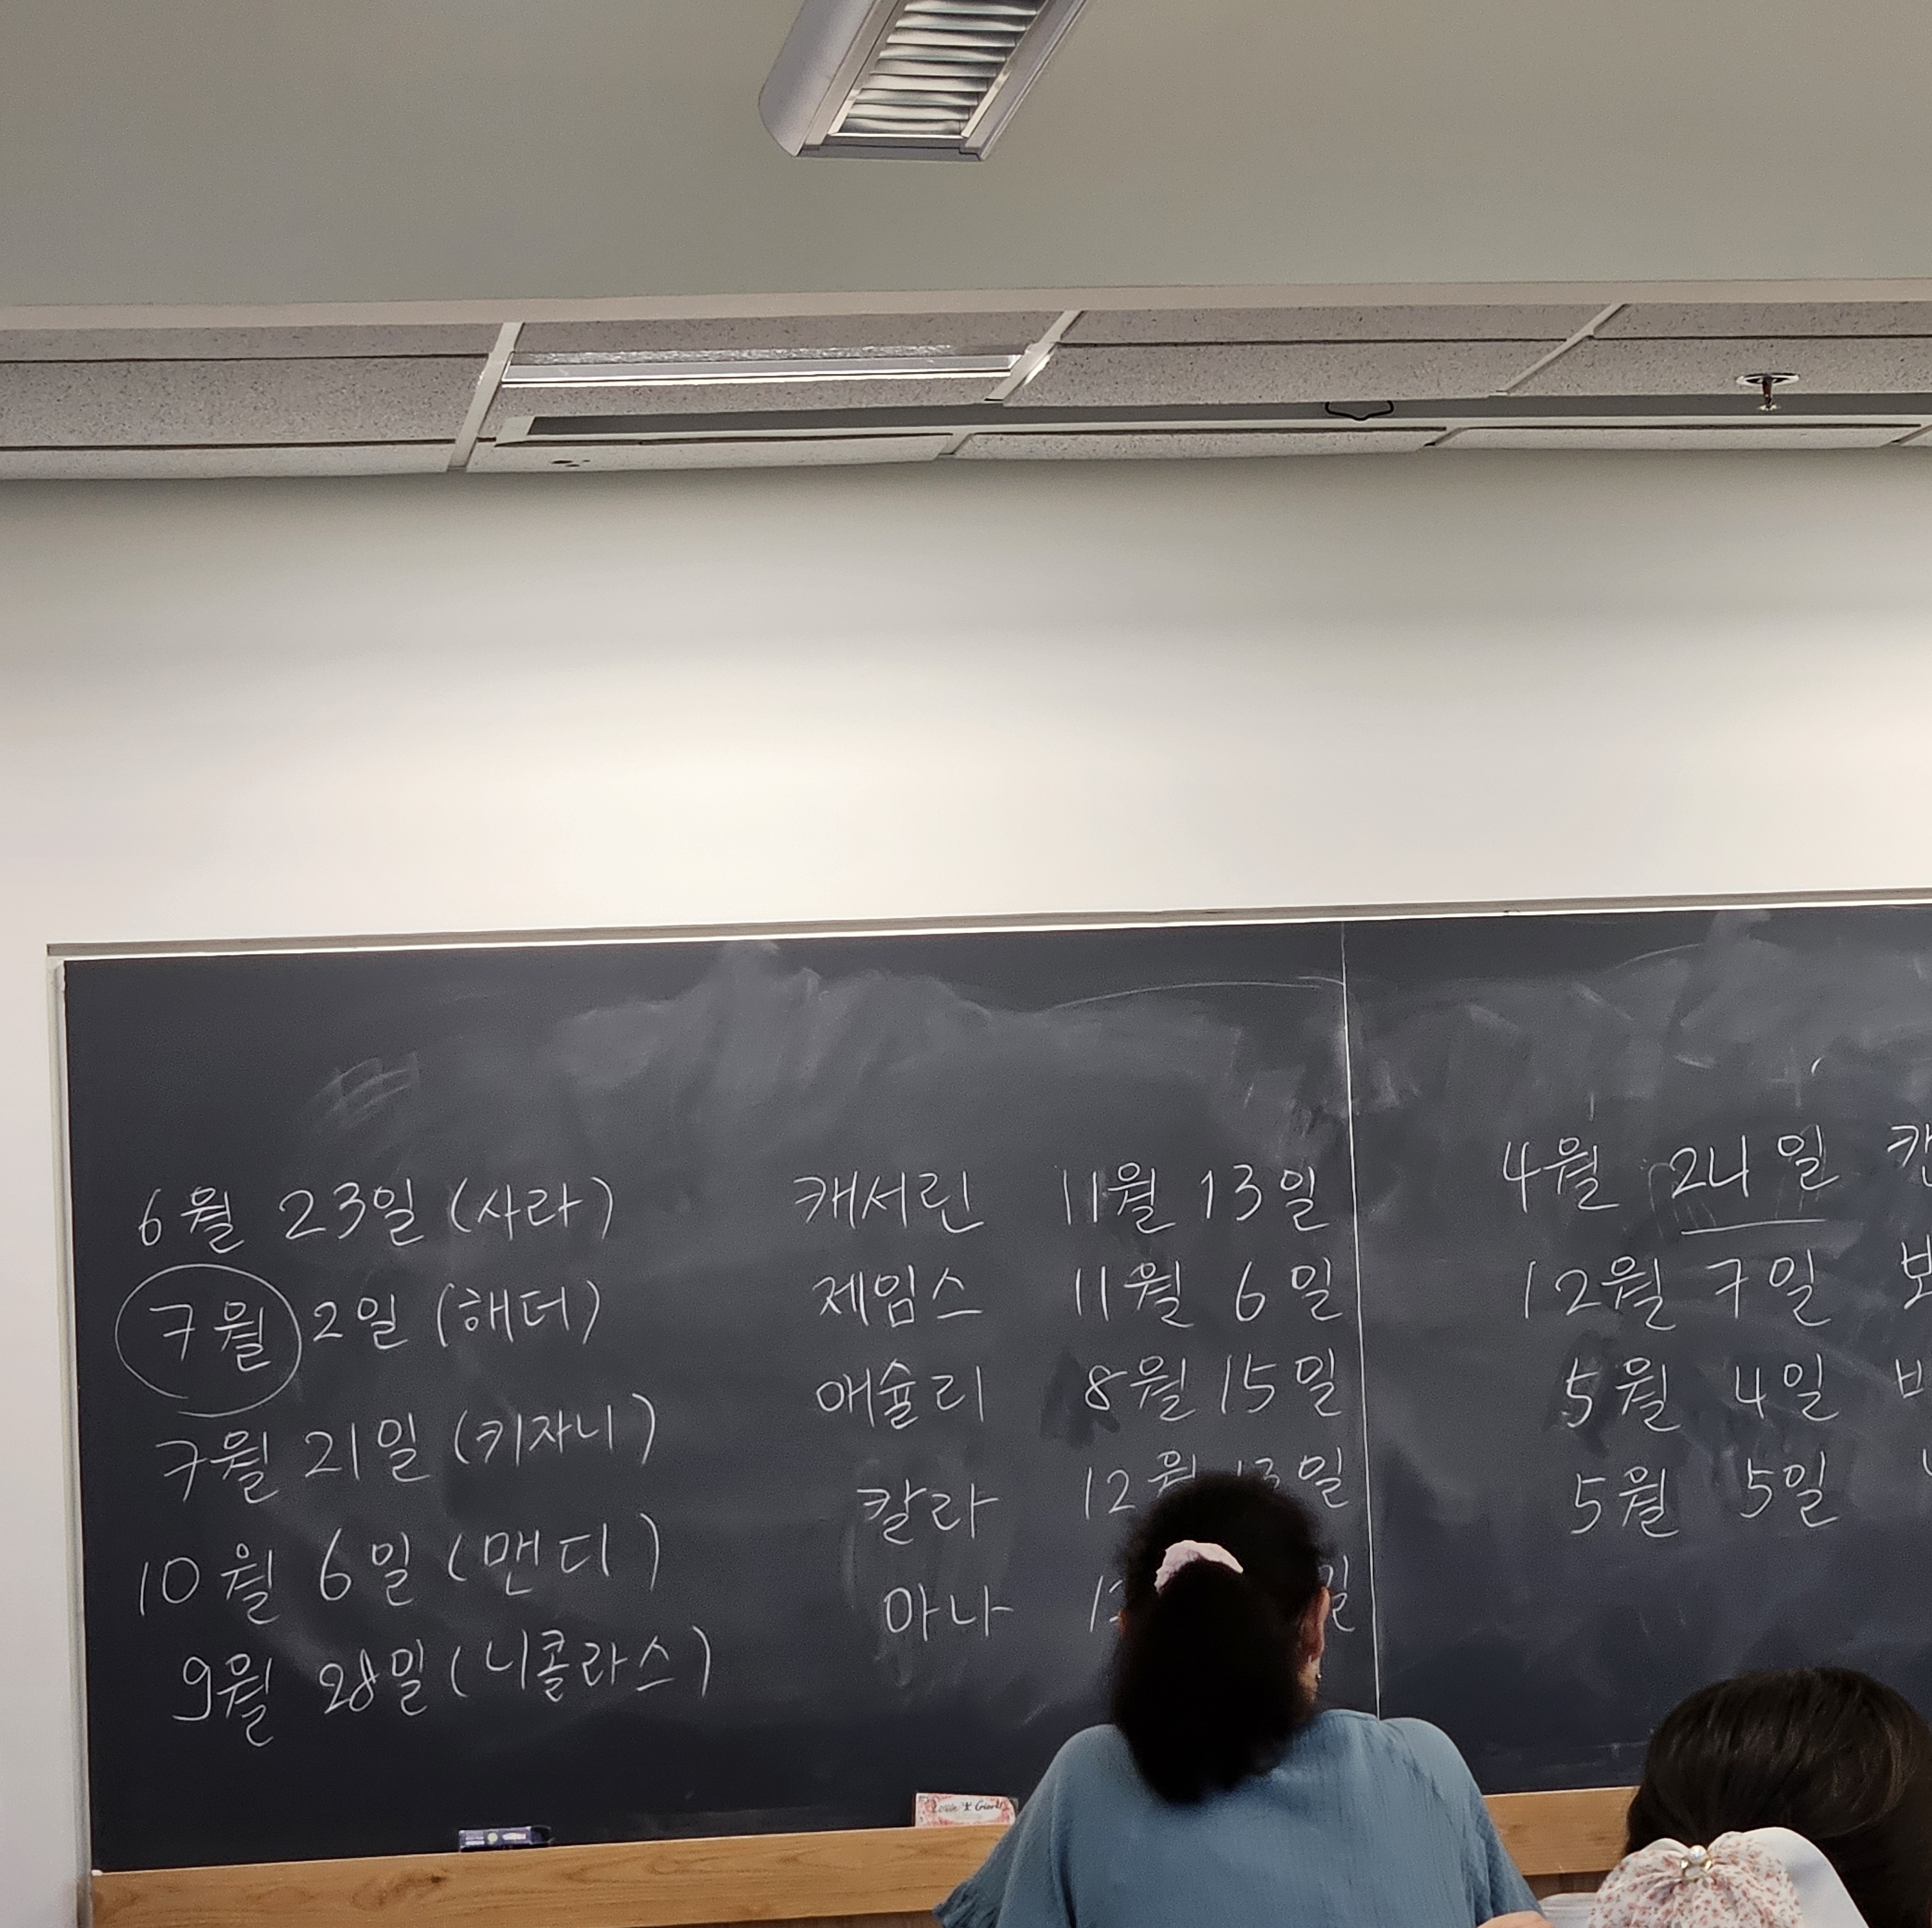 6월 23일 (사라)
7월 2일 (해더)
7월 21일 (키자니)
10월 6일 (맨디)
9월 28일 (니콜라스)
캐서린 11월 13일
제임스 11월 6일
애슐리 8월 15일
칼라 12월 13일
아나
4월 24일
12월 7일
5월 4일
5월 5일